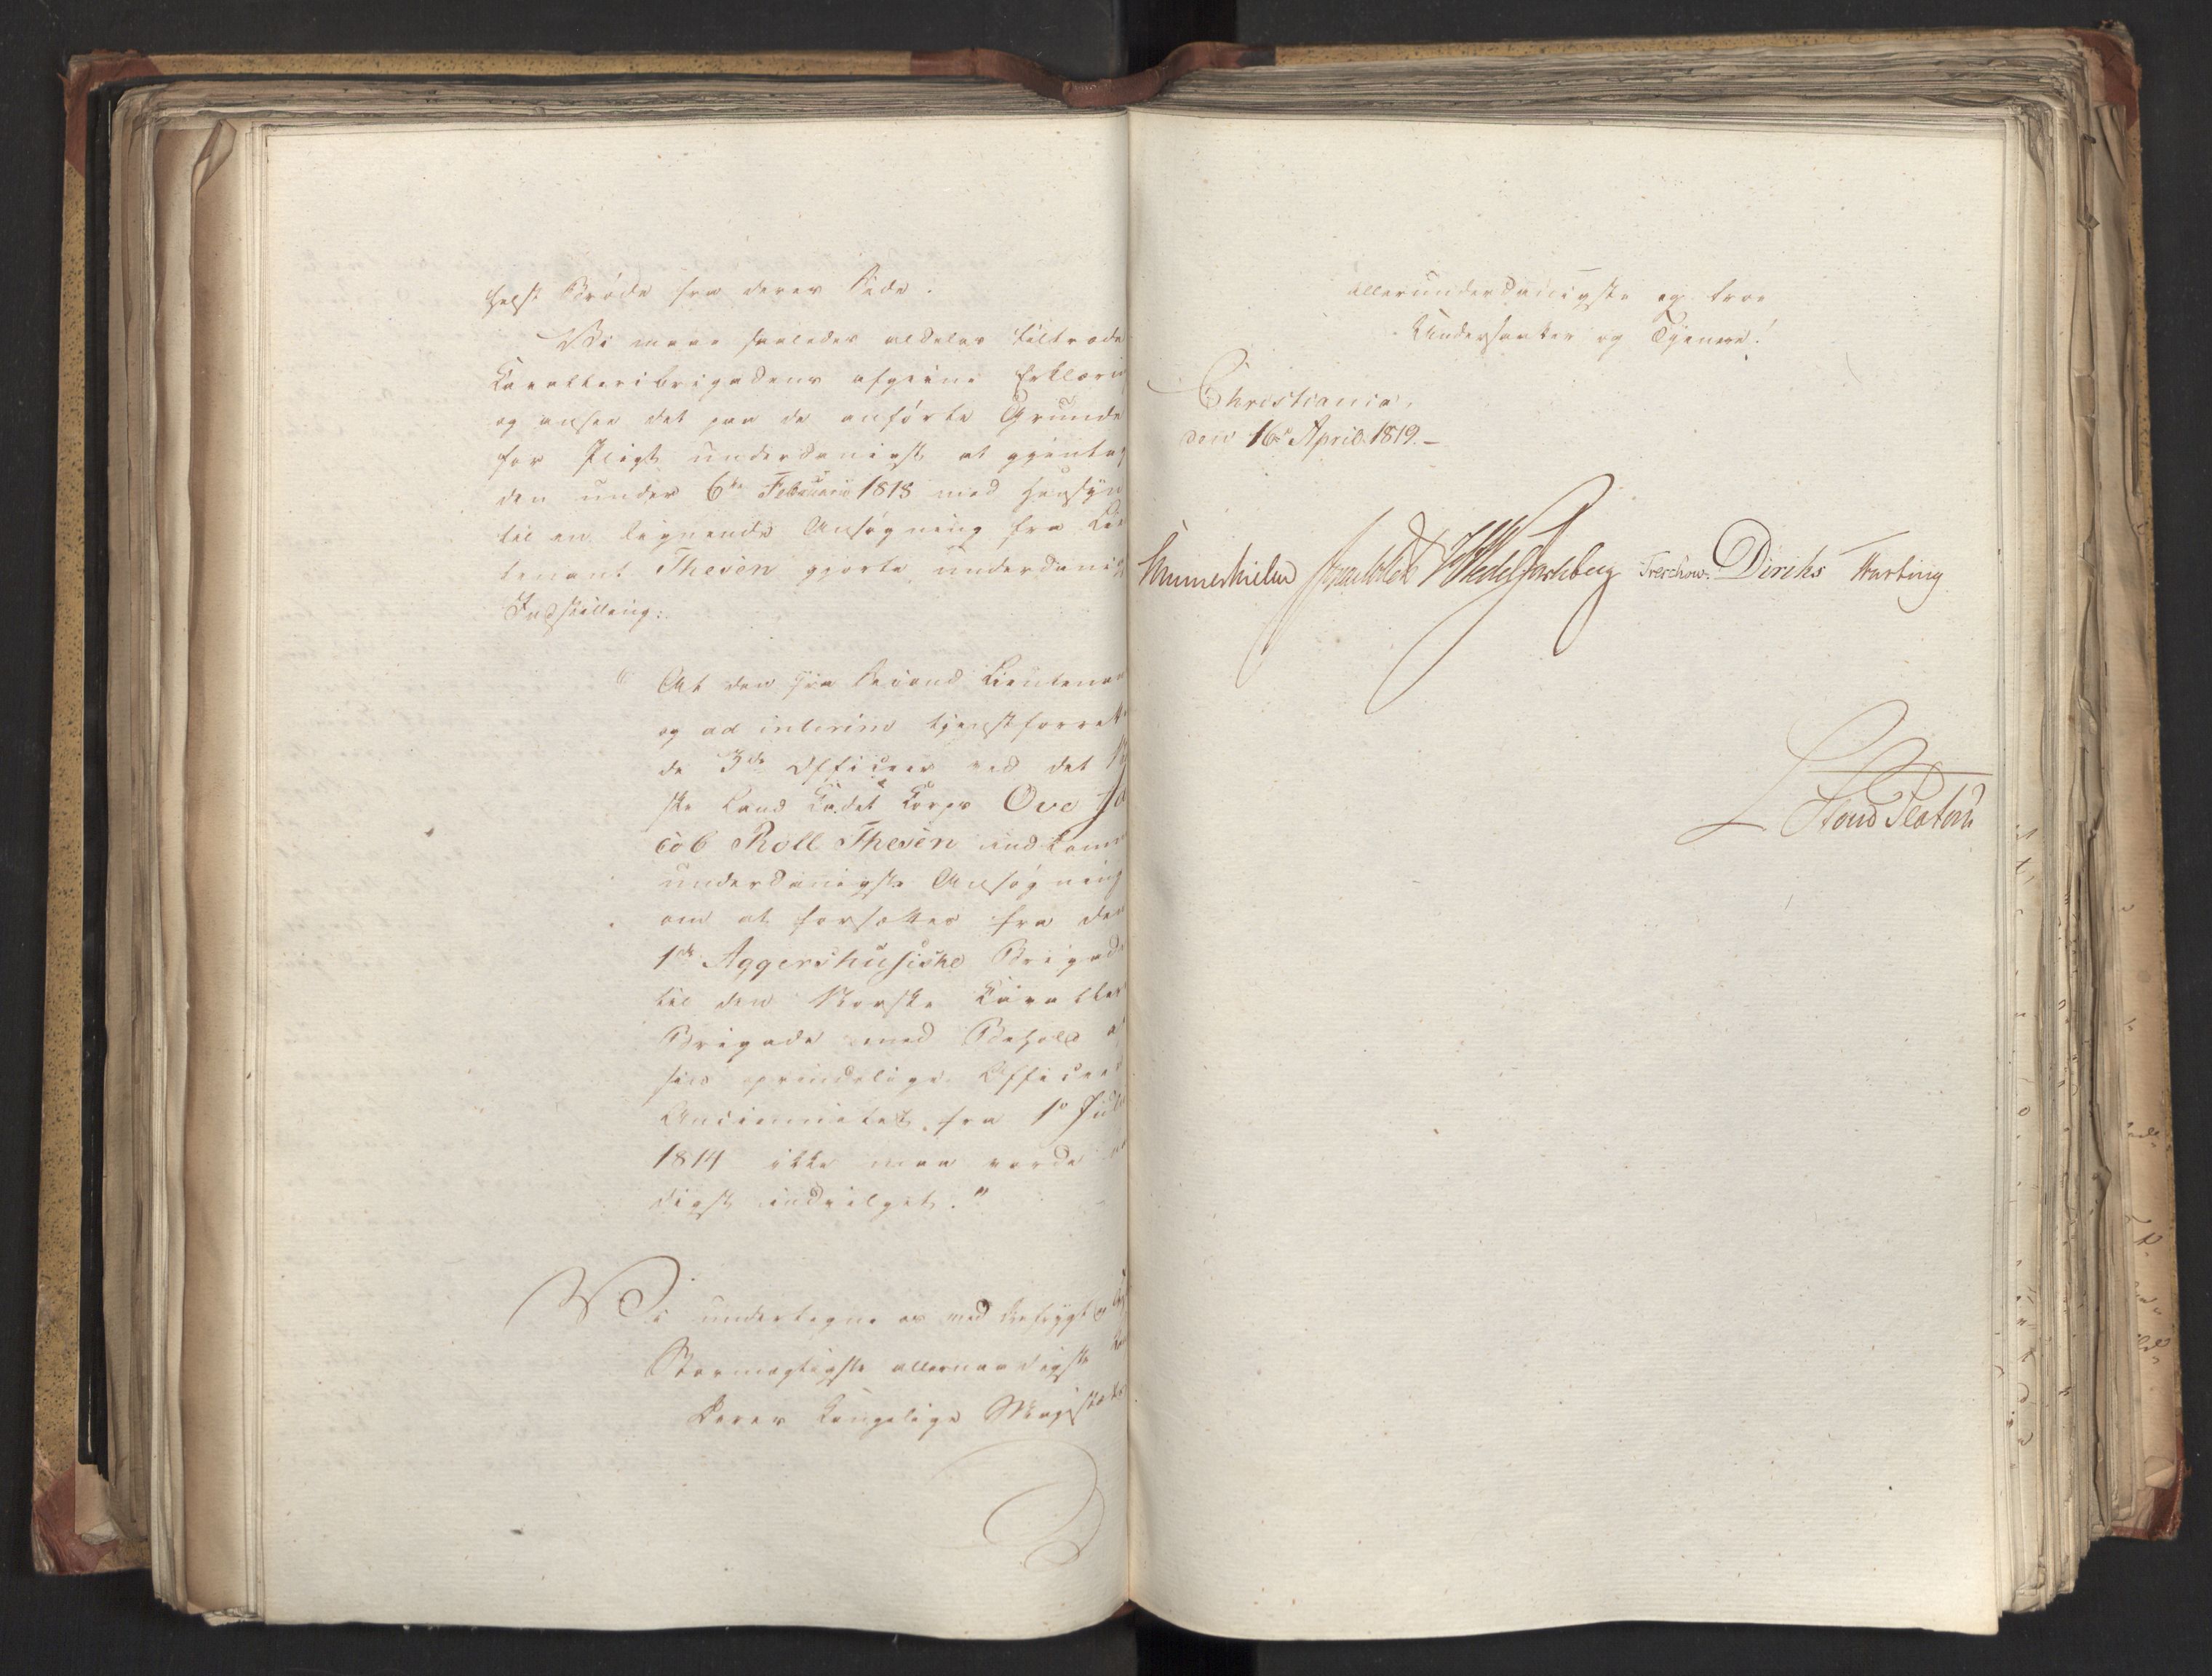 helst Brøde fra deres Side.
Vi maae saaledes aldeles tiltræde
Cavalleribrigadens afgivne Erklæring
og ansee det paa de anførte Grunde
for Pligt underdanigst at gjentag
den under 6te Februarii 1818 med Hensyn
til en lignende Ansøgning fra Lie
tenant Thesen gjorte underdanig
Indstilling:
"At den fra Second Lieutenan
og ad interim tjenstforrett
de 3die Officeer ved det N
ske Land Cadet Corps Ove Ja
cob Roll Thesen indkomn
underdanigste Ansøgning
om at forsættes fra den
1ste Aggershusiske Brigade
til den Norske Cavalleri
Brigade med Behold af
sin oprindelige Officeers
Anciennitet fra 1ste Juli
1814 ikke maa vorde
digst indvilget."
Vi undertegne os med dybeste
Stormægtigste allernaadigste
Deres Kongelige Majestæts
allerunderdanigste og troe
Undersaatter og Tjenere!
Christiania,
den 16de April 1819.-
Sommerhielm Wedel Jarlsberg Treschow. Diriks Hasting